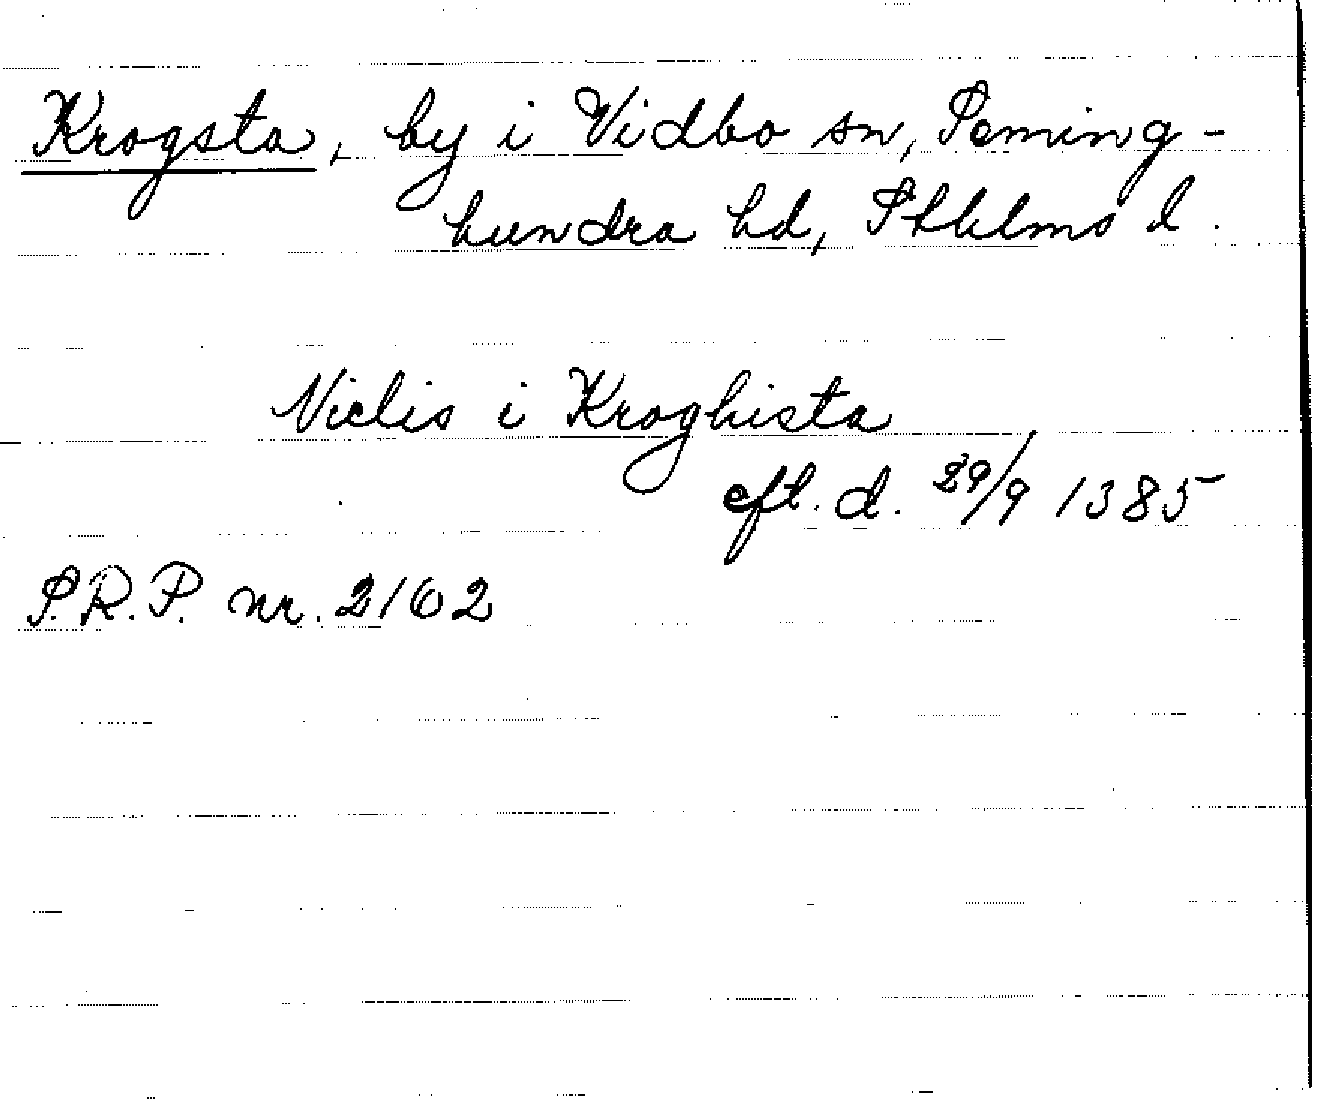 Krogsta, by i Vidbo sn, Seming-
hundra hd, Sthlms l.
Niclis i Kroghista
eft. d. 29/9 1385
S.R.P. nr. 2162